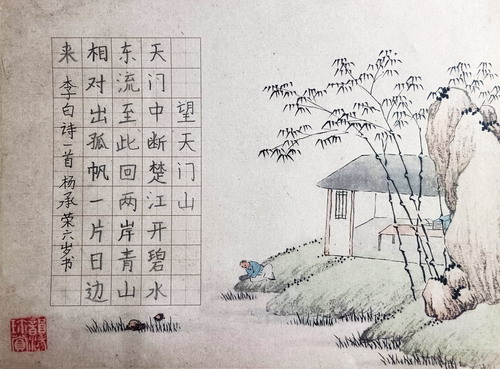 望天门山
天门中断楚江开碧水
东流至此回两岸青山
相对出孤帆一片日边
来
李白诗一首 杨承荣六岁书